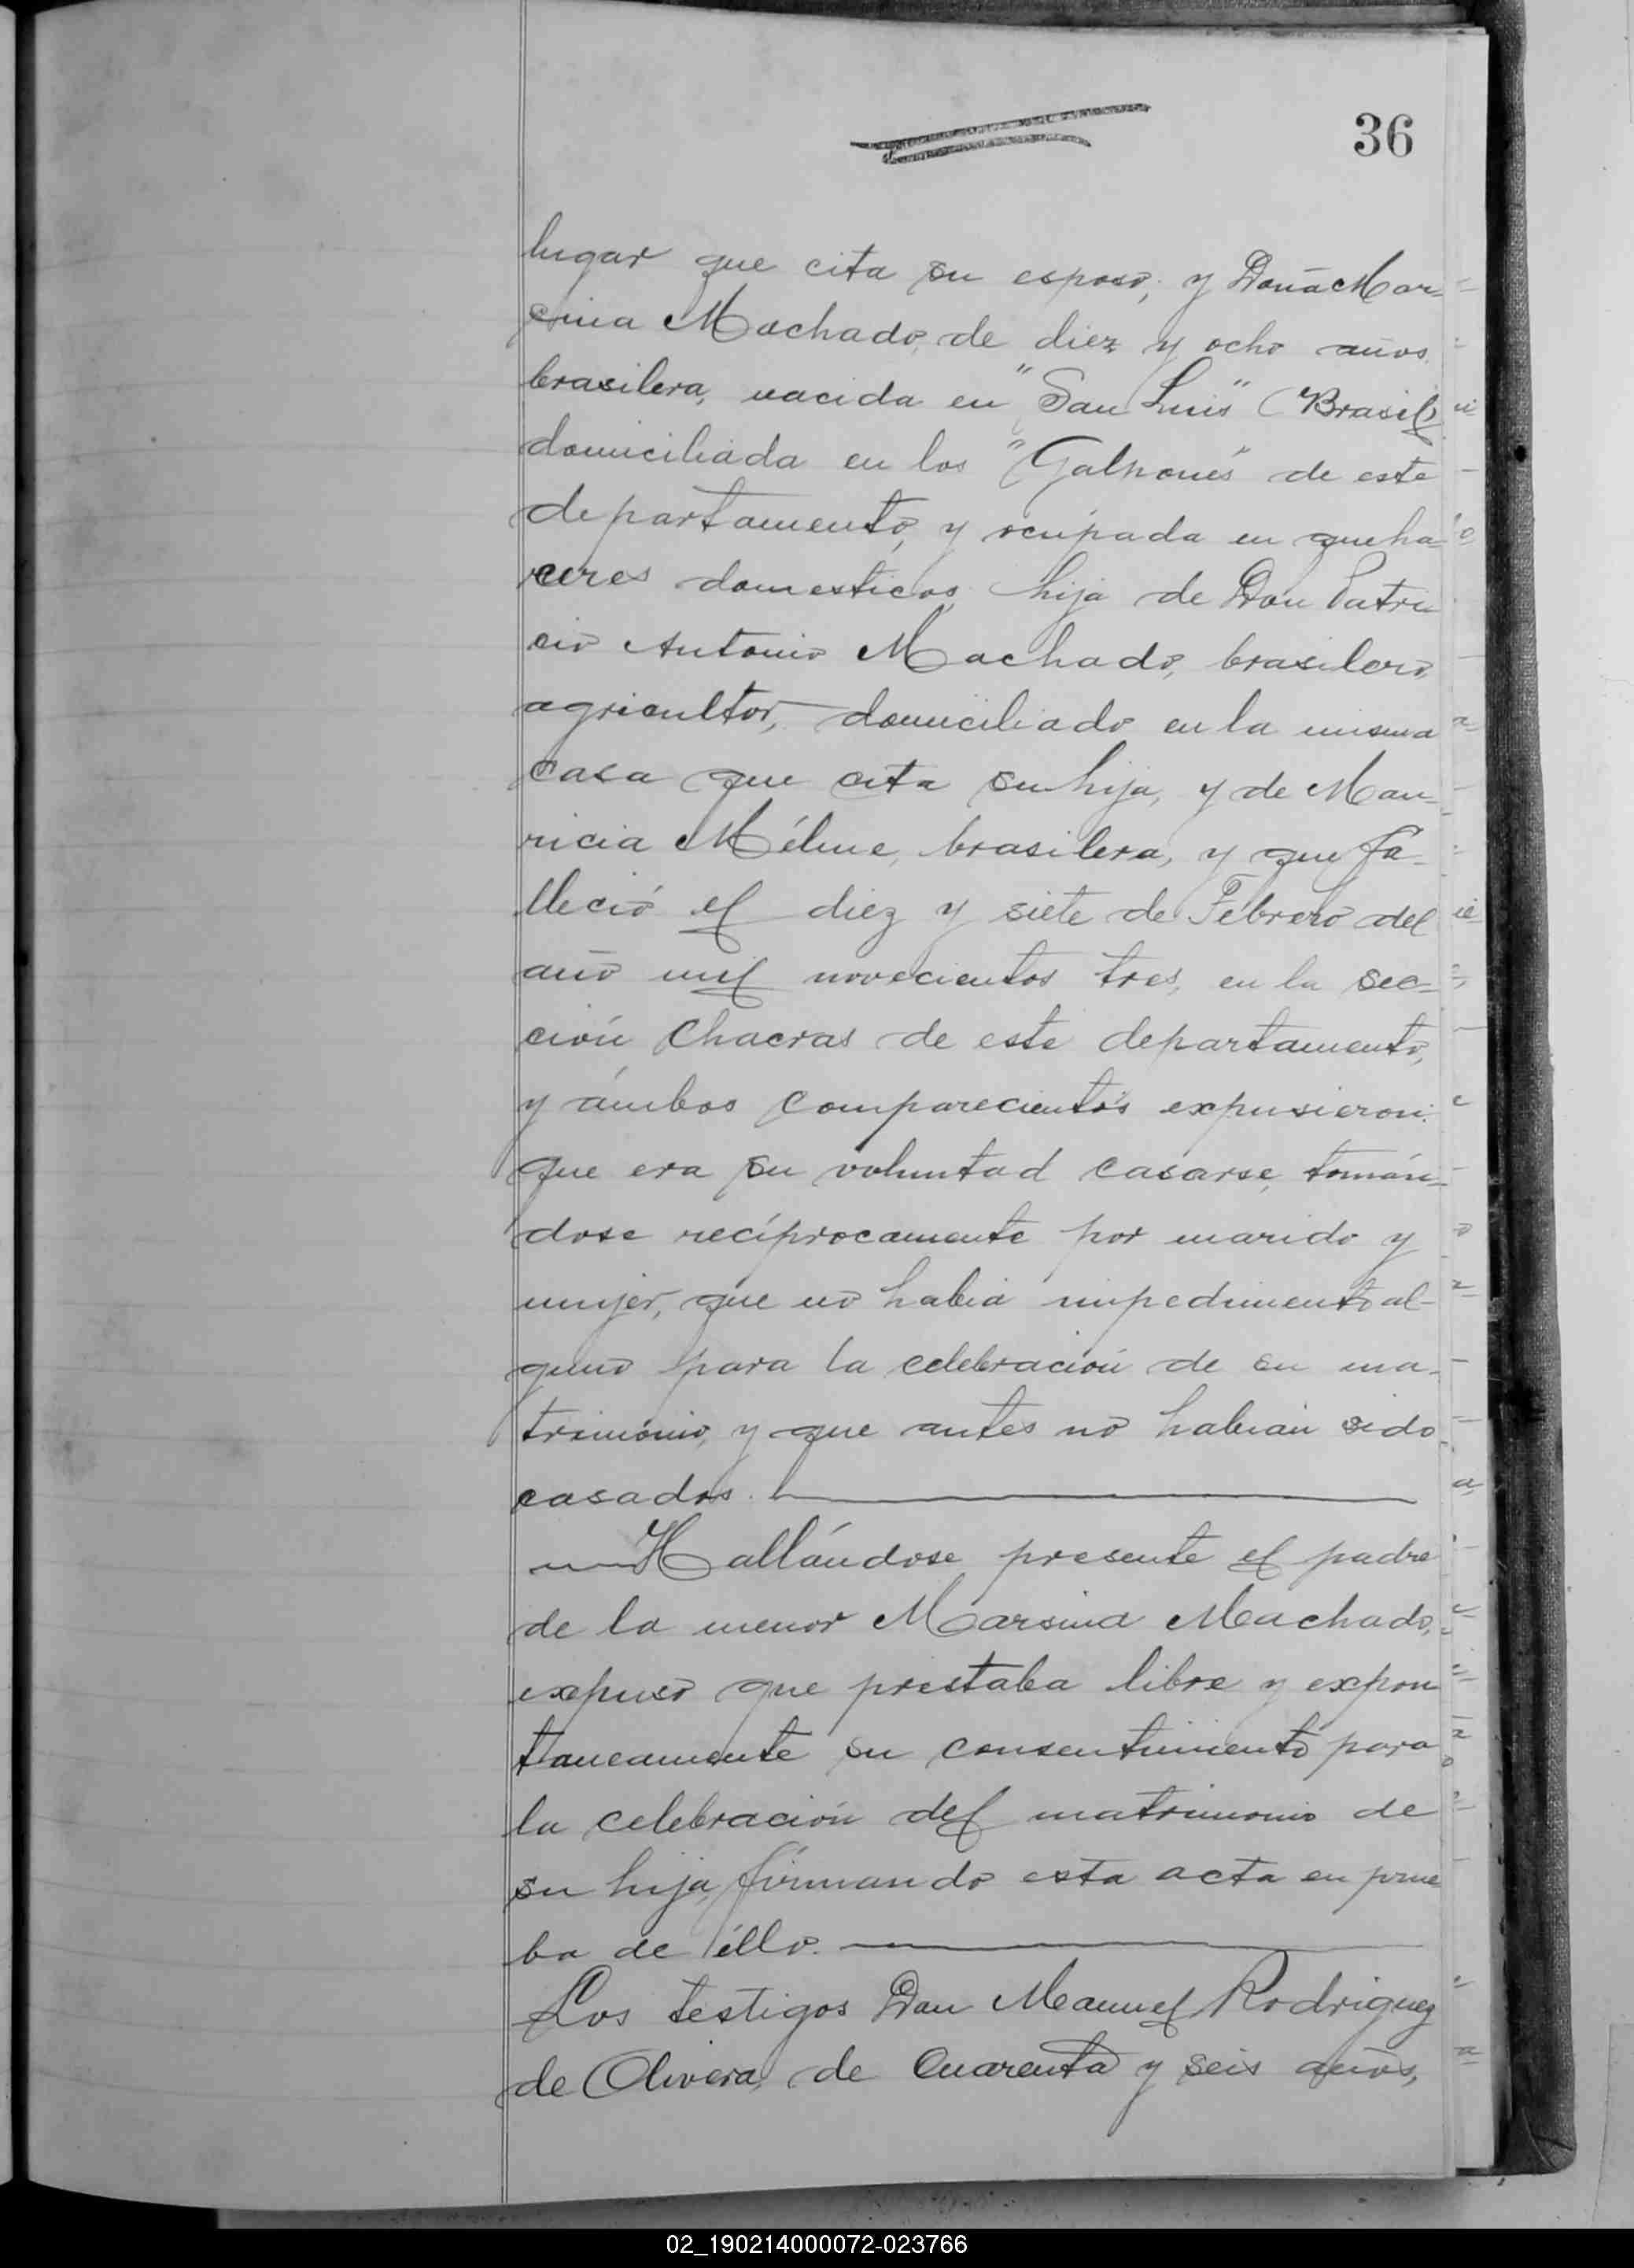 36
lugar que cita su esposo; y Doña Mar-
cina Machado, de diez y ocho años,
brasilera, nacida en "San Luis" (Brasil)
domiciliada en los "Galpones" de este
departamento, y ocupada en queha-
ceres domesticos, hija de Don Patri
cio Antonio Machado, brasilero,
agricultor, domiciliado en la misma
casa que cita su hija, y de Mau-
ricia brasilera, y que fa-
lleció el diez y siete de Febrero del
año mil novecientos tres, en la sec-
ción Chacras de este departamento,
y ámbos comparecientes expusieron:
que era su voluntad casarse, tomán-
dose recíprocamente por marido y
mujer, que no habia impedimento al-
guno para la celebración de su ma-
trimonio, y que antes no habian sido
casados.
Hallándose presente el padre
de la menor Marsina Machado,
expuso que prestaba libre y expon
taneamente su consentimiento para
la celebración del matrimonio de
su hija, firmando esta acta en prue
ba de éllo.
Los testigos Don Manuel Rodriguez
de Olivera, de cuarenta y seis años,
02_190214000072-023766